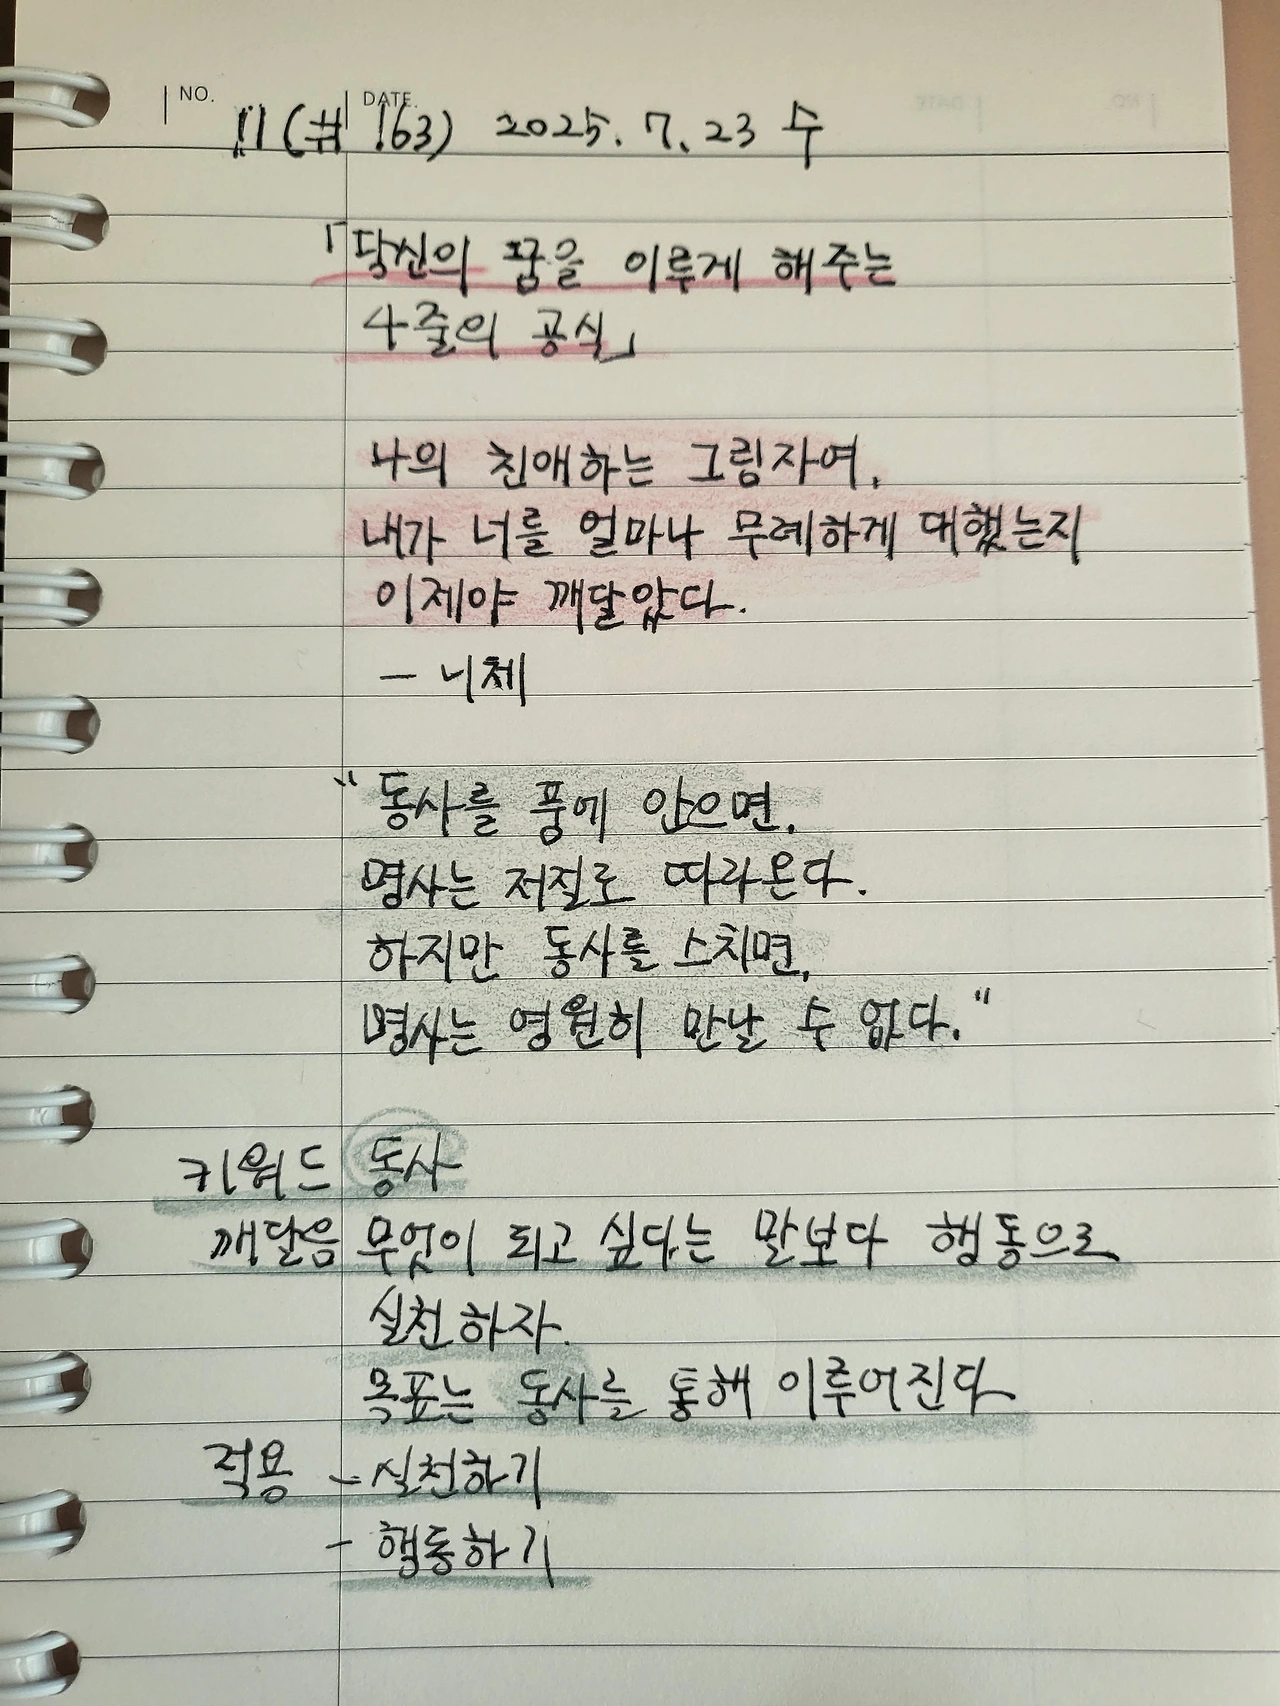 NO. DATE.
11(#163) 2025. 7. 23 수
「당신의 꿈을 이루게 해주는
4줄의 공식」
나의 친애하는 그림자여,
내가 너를 얼마나 무례하게 대했는지
이제야 깨달았다.
- 니체
"동사를 품에 안으면,
명사는 저절로 따라온다.
하지만 동사를 스치면,
명사는 영원히 만날 수 없다."
키워드 동사
깨달음 무엇이 되고 싶다는 말보다 행동으로
실천하자.
목표는 동사를 통해 이루어진다
적용 - 실천하기
- 행동하기